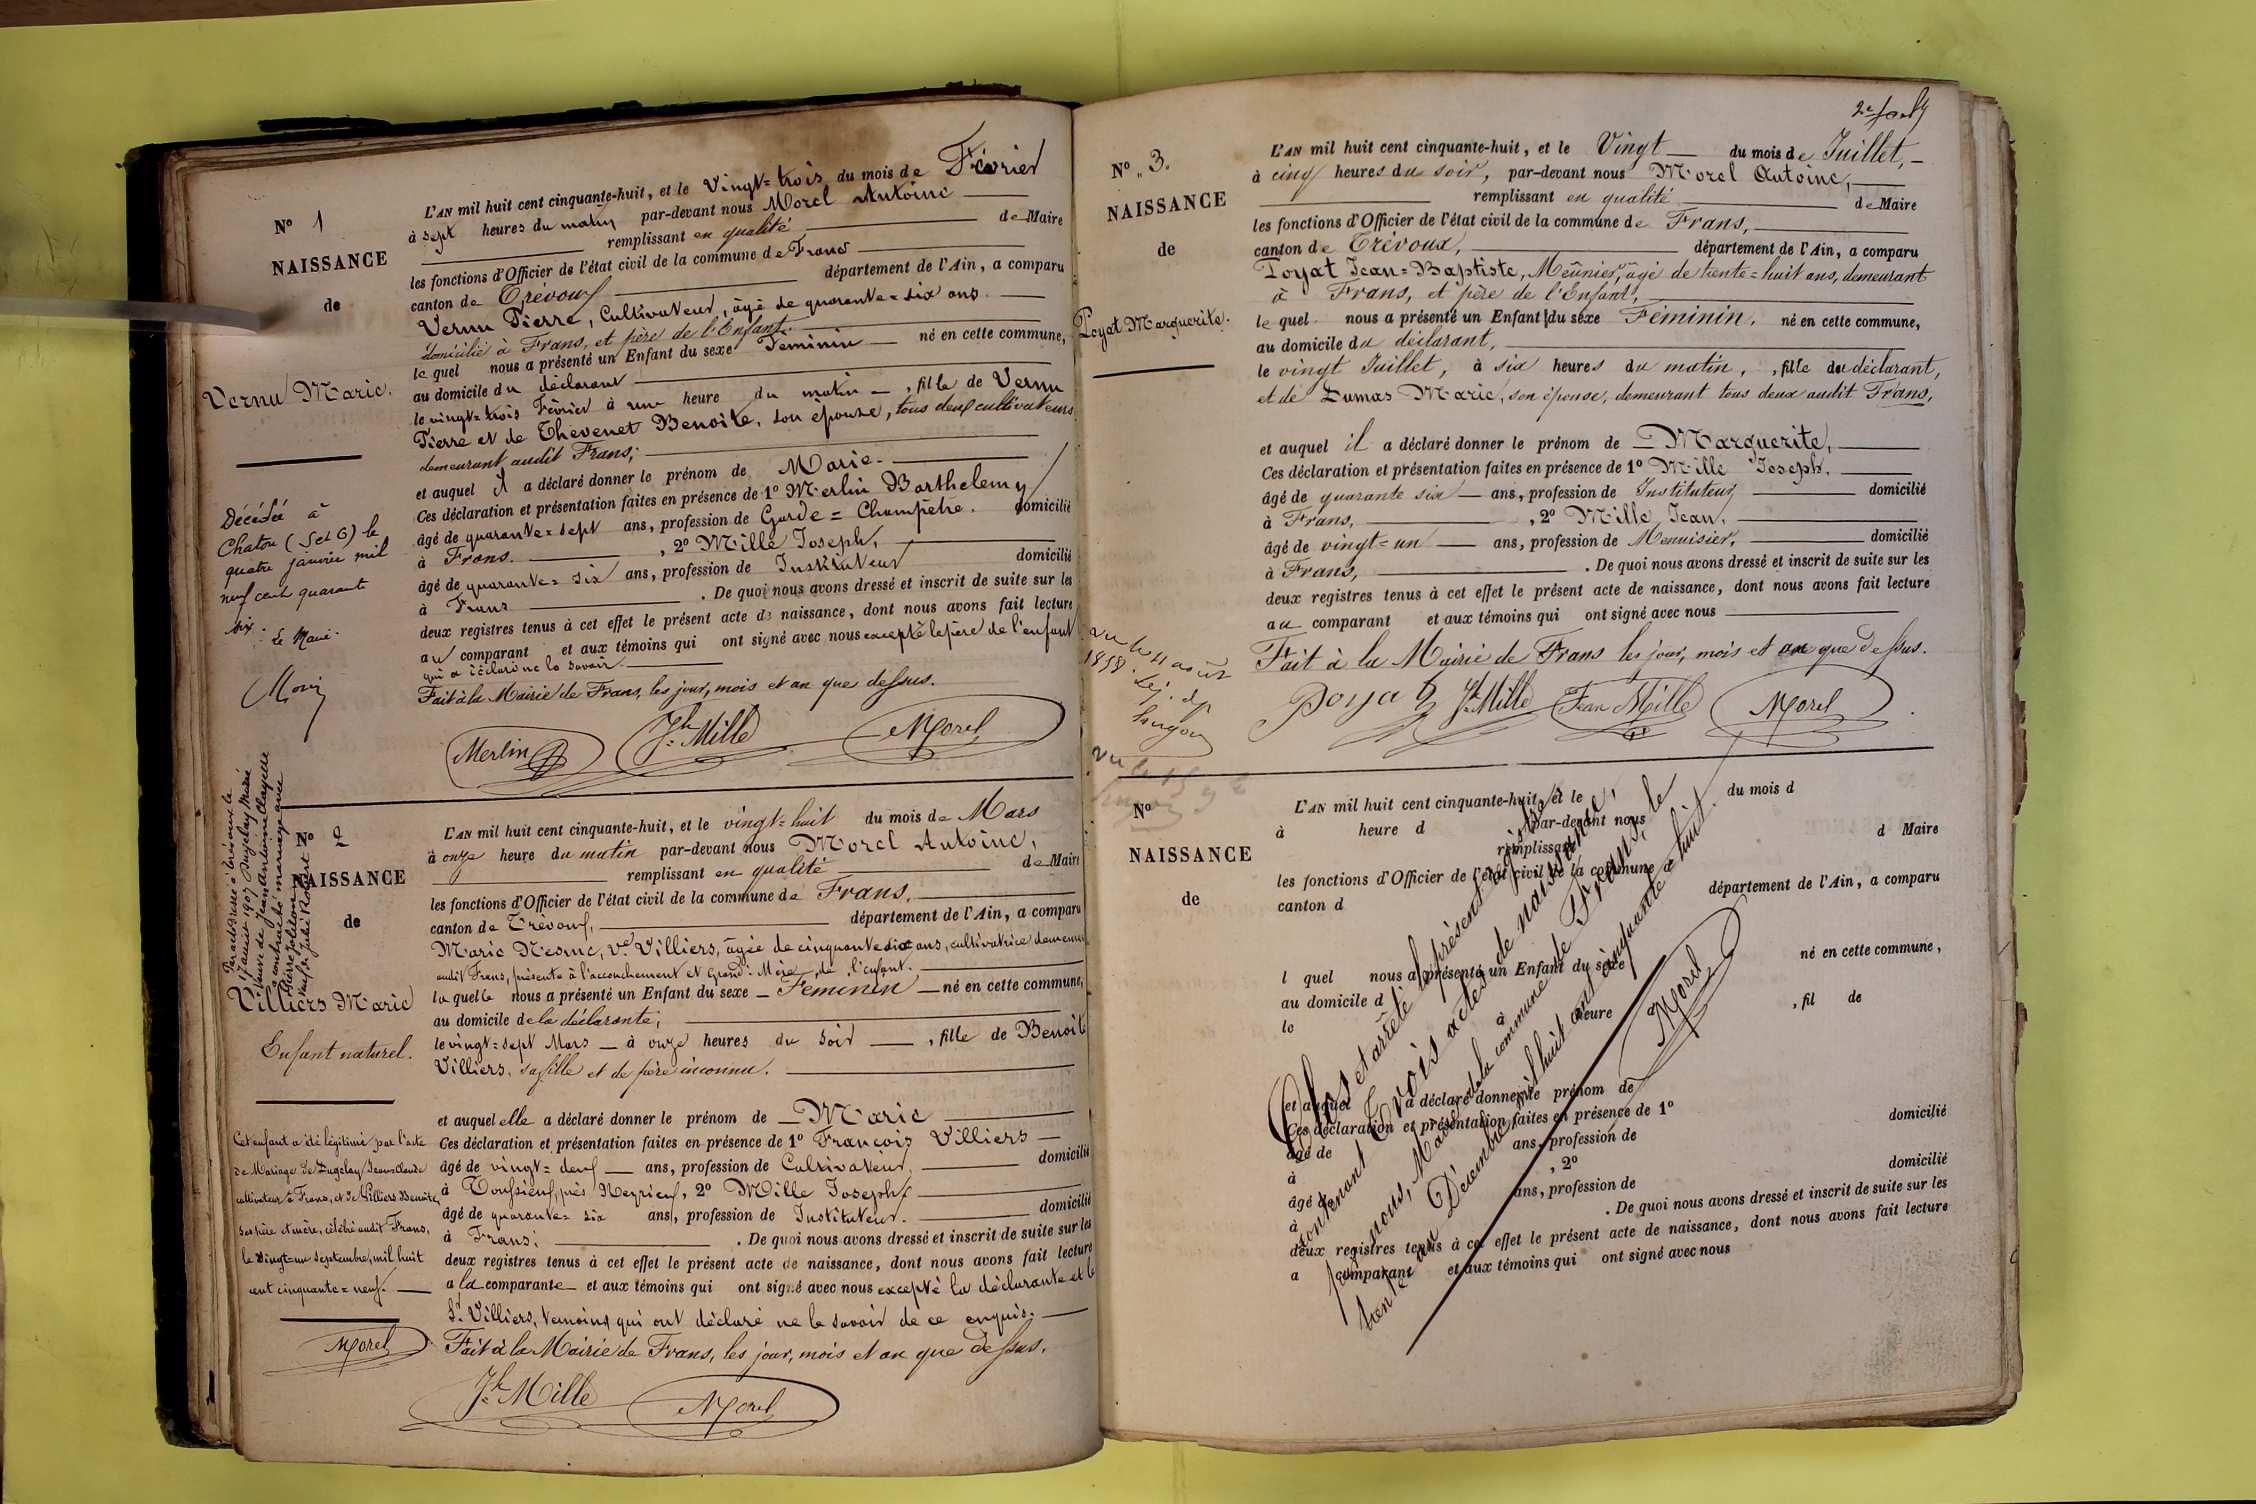 N° 1
NAISSANCE
de
Vernu Marie.
Décédée à
Chatou (S et O) le
quatre janvier mil
neuf cent quarante
six.
Le Maire.
L'AN mil huit cent cinquante-huit, et le Vingt=trois du mois de Février
à sept heures du matin par-devant nous Morel Antoine
remplissant en qualité de Maire
les fonctions d'Officier de l'état civil de la commune de Frans
canton de Trévoux département de l'Ain, a comparu
Vernu Pierre, Cultivateur, âgé de quarante=six ans.
domicilié à Frans, et père de l'Enfant.
le quel nous a présenté un Enfant du sexe Feminin né en cette commune,
au domicile du déclarant
le vingt=trois Février à une heure du matin, fille de Vernu
Pierre et de Thevenet Benoite, son épouse, tous deux cultivateurs
demeurant audit Frans;
et auquel il a déclaré donner le prénom de Marie.
Ces déclaration et présentation faites en présence de 1° Merlin Barthelemy
âgé de quarante=sept ans, profession de Garde=Champêtre. domicilié
à Frans. , 2° Mille Joseph,
âgé de quarante=six ans, profession de Instituteur domicilié
à Frans . De quoi nous avons dressé et inscrit de suite sur les
deux registres tenus à cet effet le présent acte de naissance, dont nous avons fait lecture
au comparant et aux témoins qui ont signé avec nous excepté le père de l'enfant
qui a déclaré ne le savoir.
Fait à la Mairie de Frans, les jour, mois et an que dessus.
Merlin Jh Mille Morel
Par acte dressé à Trévoux le
17 août 1907 Dugelay Marie
veuve de Jean Antoine Clayette
a contracté mariage avec
Pierre Joliton
veuf de Julie Robert
N° 2
NAISSANCE
de
Villiers Marie
Enfant naturel.
Cet enfant a été légitimé par l'acte
de Mariage de Dugelay Jean Claude
cultivateur à Frans, et de Villiers Benoite,
ses père et mère, célébré audit Frans,
le vingt=un septembre, mil huit
cent cinquante=neuf.
Morel
L'AN mil huit cent cinquante-huit, et le vingt=huit du mois de Mars
à onze heure du matin par-devant nous Morel Antoine,
remplissant en qualité de Maire
les fonctions d'Officier de l'état civil de la commune de Frans,
canton de Trévoux, département de l'Ain, a comparu
Marie Nesme, Ve Villiers, âgée de cinquante dix ans, cultivatrice
audit Frans, présente à l'accouchement et Grand=Mère de l'enfant.
la quelle nous a présenté un Enfant du sexe Feminin né en cette commune,
au domicile de la déclarante,
le vingt=sept Mars à onze heures du soir , fille de Benoite
Villiers, sa fille et de père inconnu.
et auquel elle a déclaré donner le prénom de Marie
Ces déclaration et présentation faites en présence de 1° François Villiers
âgé de vingt=deux ans, profession de Cultivateur, domicilié
à Toussieux, près Reyrieux, 2° Mille Joseph
âgé de quarante=six ans, profession de Instituteur. domicilié
à Frans; . De quoi nous avons dressé et inscrit de suite sur les
deux registres tenus à cet effet le présent acte de naissance, dont nous avons fait lecture
a la comparante et aux témoins qui ont signé avec nous excepté la déclarante et le
Sr Villiers, témoins qui ont déclaré ne le savoir de ce enquis.
Fait à la Mairie de Frans, les jour, mois et an que dessus.
Jh Mille Morel
N° 3.
NAISSANCE
de
Poyat Marguerite.
L'AN mil huit cent cinquante-huit, et le Vingt du mois de Juillet,
à cinq heures du soir, par-devant nous Morel Antoine,
remplissant en qualité de Maire
les fonctions d'Officier de l'état civil de la commune de Frans,
canton de Trévoux, département de l'Ain, a comparu
Poyat Jean=Baptiste, Meûnier, âgé de trente=huit ans, demeurant
à Frans, et père de l'Enfant,
le quel nous a présenté un Enfant du sexe Féminin, né en cette commune,
au domicile du déclarant,
le vingt Juillet, à six heures du matin, , fille du déclarant,
et de Dumas Marie, son épouse, demeurant tous deux audit Frans,
et auquel il a déclaré donner le prénom de Marguerite,
Ces déclaration et présentation faites en présence de 1° Mille Joseph,
âgé de quarante six ans, profession de Instituteur domicilié
à Frans, , 2° Mille Jean,
âgé de vingt=un ans, profession de Menuisier, domicilié
à Frans, . De quoi nous avons dressé et inscrit de suite sur les
deux registres tenus à cet effet le présent acte de naissance, dont nous avons fait lecture
au comparant et aux témoins qui ont signé avec nous
Fait à la Mairie de Frans les jour, mois et an que dessus.
Poyat Jh Mille Jean Mille Morel
vu le 11 août
1858.
N°
NAISSANCE
de
L'AN mil huit cent cinquante-huit, et le du mois d
à heure d par-devant nous
remplissant d Maire
les fonctions d'Officier de l'état civil de la commune d
canton d département de l'Ain, a comparu
l quel nous a présenté un Enfant du sexe né en cette commune,
au domicile d
le à heure , fil de
et auquel a déclaré donner le prénom de
Ces déclaration et présentation faites en présence de 1°
âgé de ans, profession de domicilié
à , 2°
âgé de ans, profession de domicilié
à . De quoi nous avons dressé et inscrit de suite sur les
deux registres tenus à cet effet le présent acte de naissance, dont nous avons fait lecture
a comparant et aux témoins qui ont signé avec nous
Clos et arrêté le présent registre,
contenant trois actes de naissance,
par nous, Maire de la commune de Frans, le
trente=un Décembre mil huit cent cinquante=huit.
Morel